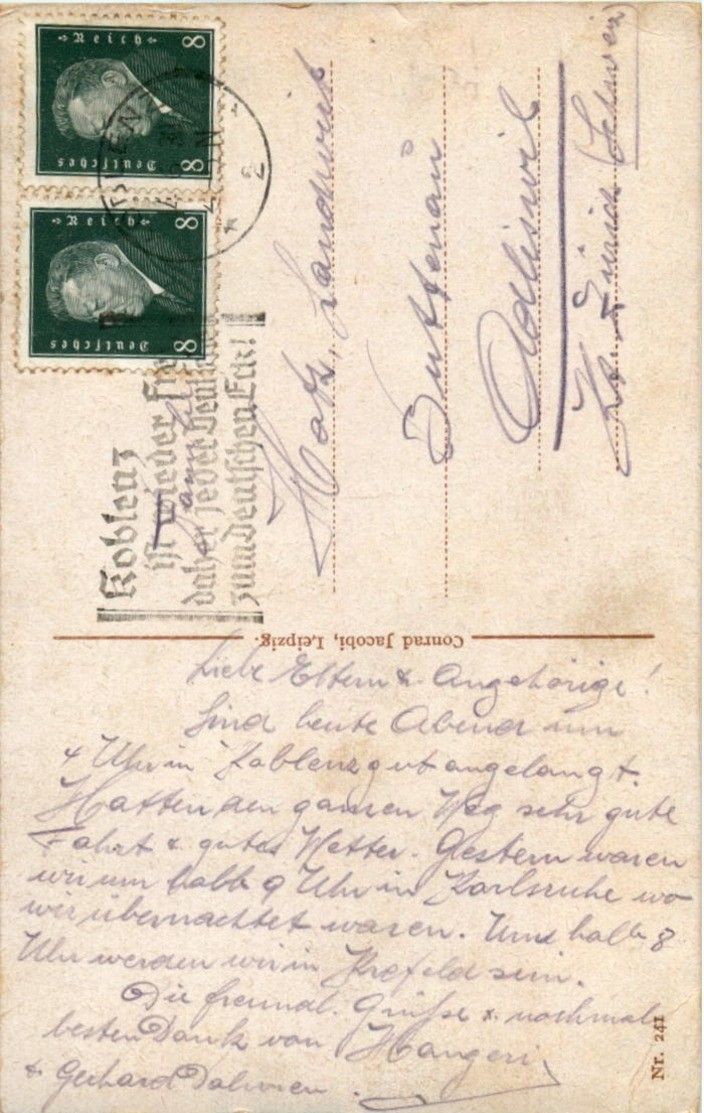 Deutsches Reich
8 8
Deutsches Reich
8 8
2
Koblenz
ist wieder frei
daher jeder Deutsche
zum Deutschen Eck!
Familie
Hotz, Landwirt
Buttenau
Adliswil
Kt. Zürich (Schweiz)
Conrad Jacobi, Leipzig.
Liebe Eltern & Angehörige!
Sind heute Abend um
4 Uhr in Koblenz gut angelangt.
Hatten den ganzen Weg sehr gute
Fahrt & gutes Wetter. Gestern waren
wir um halb 9 Uhr in Karlsruhe wo
wir übernachtet waren. Um halb 8
Uhr werden wir in Krefeld sein.
Die freundl. Grüße & nochmals
besten Dank von
& Gerhard
Nr. 241